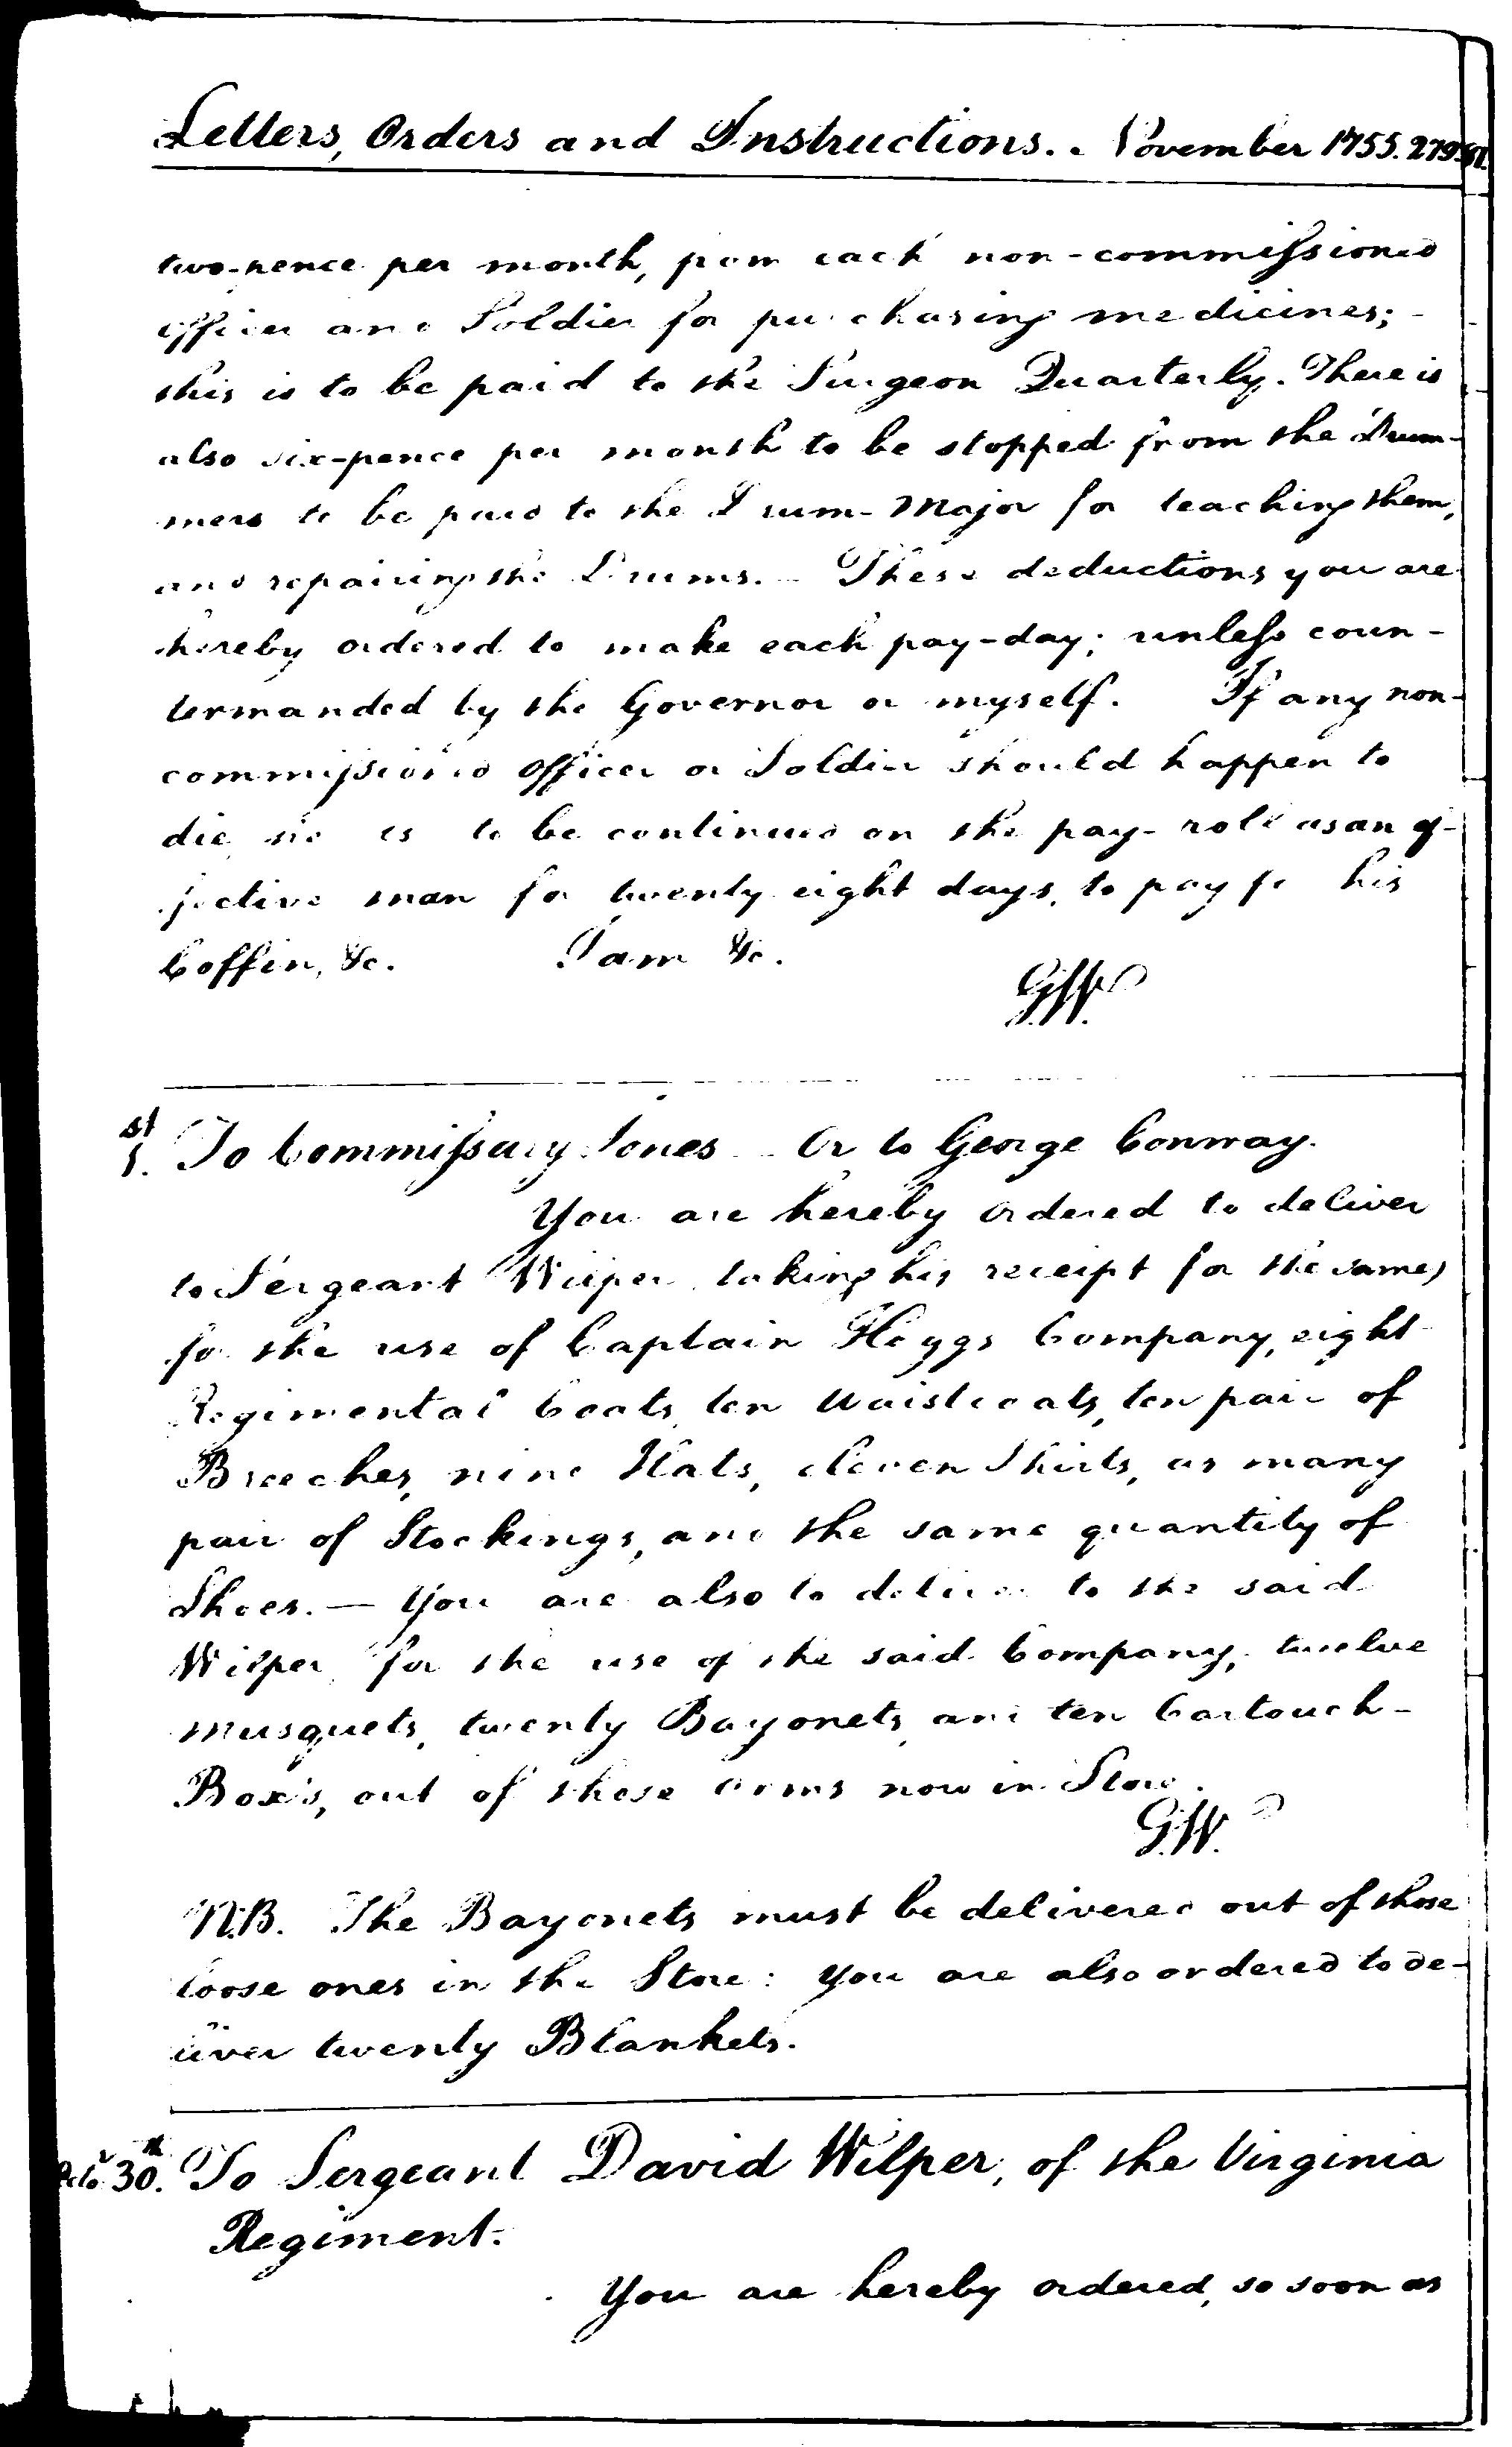 Letters, Orders and Instructions. November 1755. 279
two-pence per month, from each non-commissioned
officer and Soldier for purchasing medicines;
this is to be paid to the Surgeon Quarterly. There is
also six-pence per month to be stopped from the Drum-
mers to be paid to the Drum-Major for teaching them,
and repairing the Drums. These deductions you are
hereby ordered to make each pay-day; unless coun-
termanded by the Governor or myself. If any non-
commissioned officer or Soldier should happen to
die, he is to be continued on the pay-roll as an ef-
fective man for twenty eight days, to pay for his
Coffin, &c. I am &c.
G:W.
1st. To Commissary Jones - Or to George Conway.
You are hereby ordered to deliver
to Sergeant Wilper (taking his receipt for the same)
for the use of Captain Hoggs Company, eight
Regimental Coats, ten Waistcoats, ten pair of
Breeches, nine Hats, eleven Shirts, as many
pair of Stockings, and the same quantity of
Shoes. — You are also to deliver to the said
Wilper, for the use of the said Company, twelve
musquets, twenty Bayonets, and ten Cartouch-
Box's, out of those arms now in Store.
G:W.
N.B. The Bayonets must be delivered out of those
loose ones in the Store: You are also ordered to de-
liver twenty Blankets.
Octo. 30th. To Sergeant David Wilper, of the Virginia
Regiment.
You are hereby ordered, so soon as